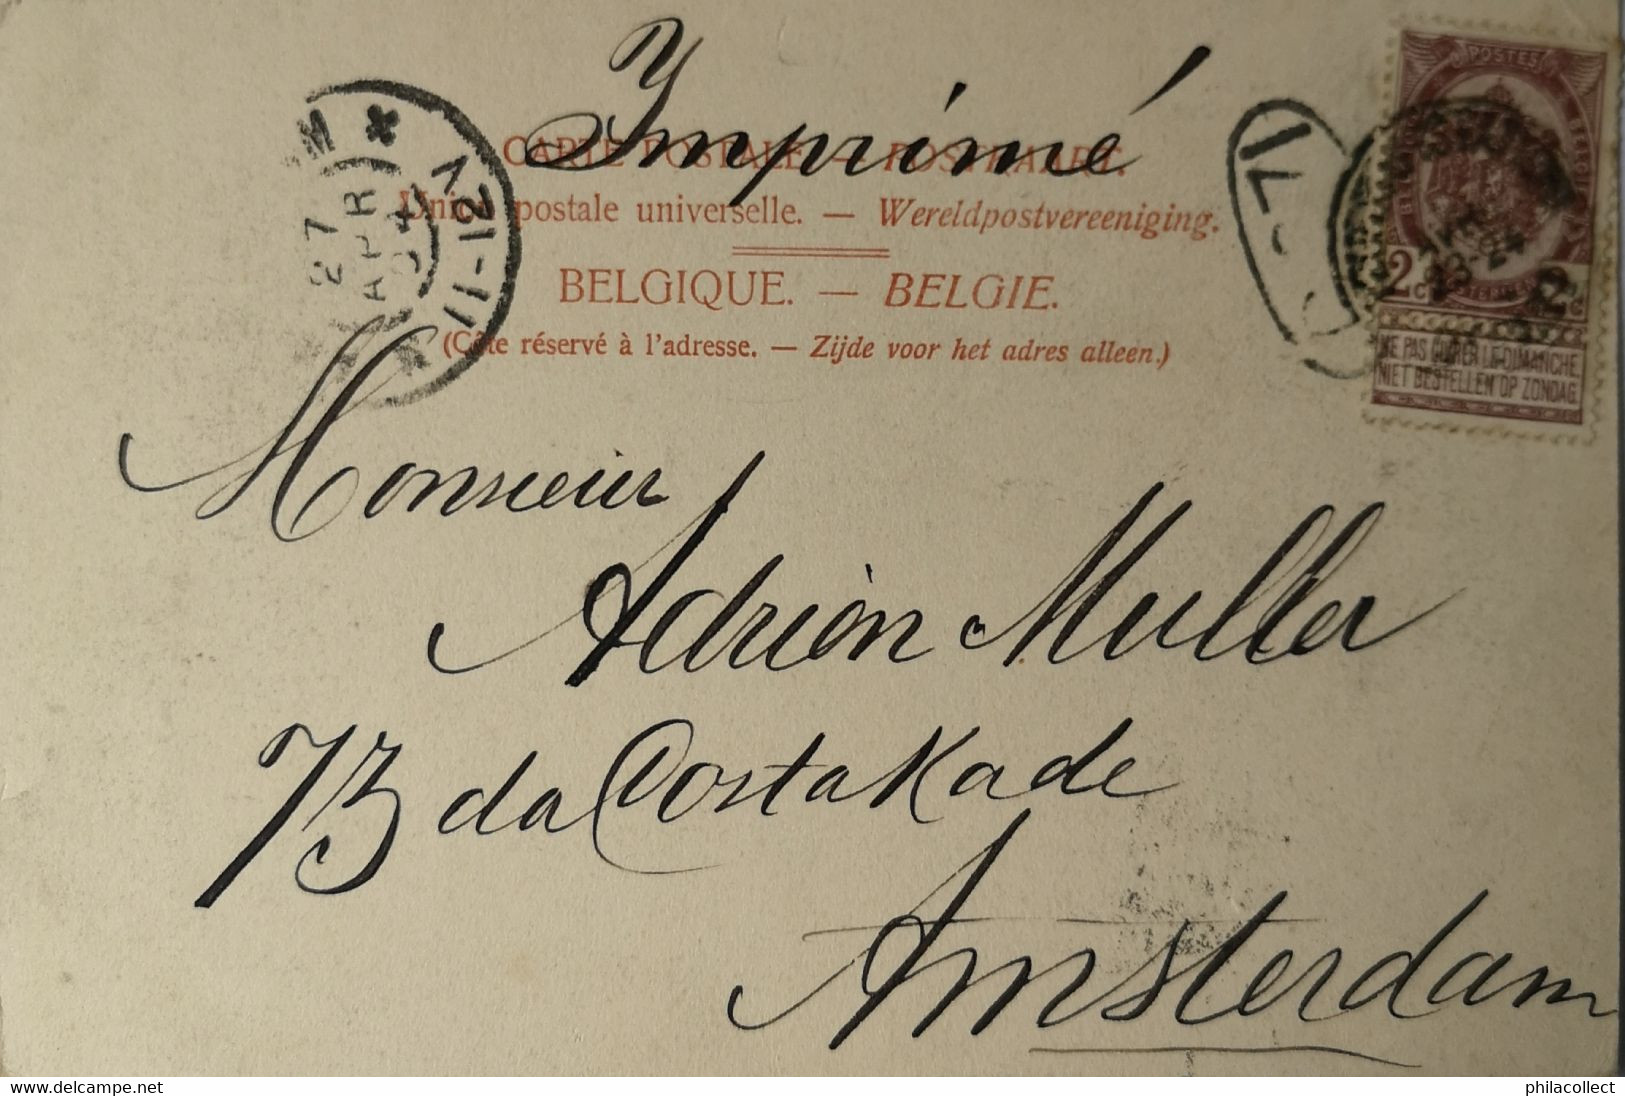 Imprimé
CARTE POSTALE — POSTKAART.
Union postale universelle. — Wereldpostvereeniging.
BELGIQUE. — BELGIE.
(Côte réservé à l'adresse. — Zijde voor het adres alleen.)
11-12 V
27 APR 04
POSTES
2c 2c
NE PAS LIVRER LE DIMANCHE
NIET BESTELLEN OP ZONDAG
Monsieur
Adrien Muller
73 da Costakade
Amsterdam
www.delcampe.net
philacollect